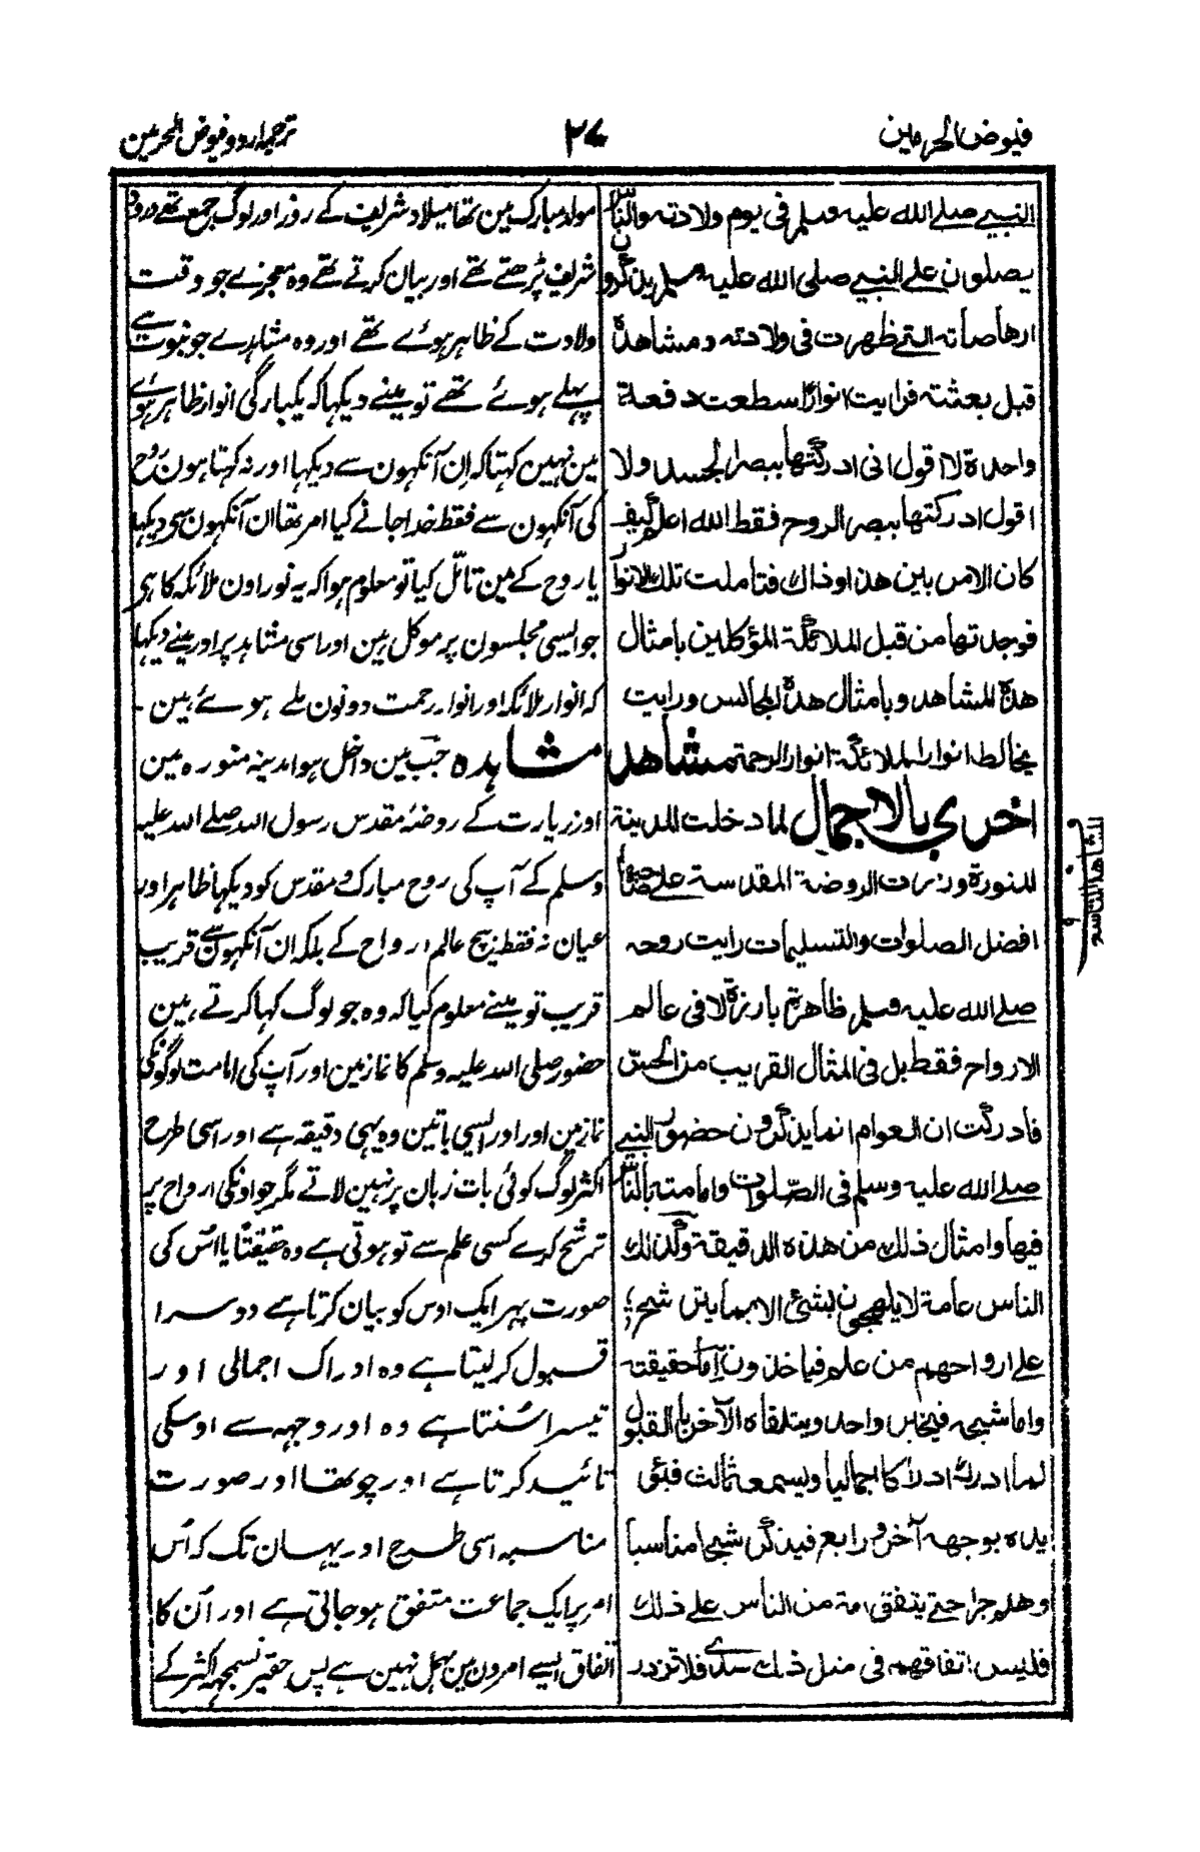 فیوض الحرمین
۲۷
ترجمہ اردو فیوض الحرمین
النبی صلے اللہ علیہ وسلم فی یوم ولادتہ والناس
یصلون علے النبی صلی اللہ علیہ وسلم ویذکرون
ارھاصاتہ التی ظھرت فی ولادتہ ومشاھدۃ
قبل بعثتہ فرایت انوارا سطعت دفعۃ
واحدۃ لا اقول انی ادرکتھا ببصر الجسد ولا
اقول ادرکتھا ببصر الروح فقط اللہ اعلم کیف
کان الامر بین ھذا وذاک فتاملت تلک الانوار
فوجدتھا من قبل الملائکۃ المؤکلین بامثال
ھذہ المشاھد وبامثال ھذہ المجالس ورایت
یخالط انوار الملائکۃ انوار الرحمۃ مشاھد
اخری بالاجمال لما دخلت المدینۃ
المنورۃ وزرت الروضۃ المقدسۃ علے صاحبھا
افضل الصلوات والتسلیمات رایت روحہ
صلے اللہ علیہ وسلم ظاھرۃ بارزۃ لا فی عالم
الارواح فقط بل فی المثال القریب من الحس
فادرکت ان العوام انما یذکرون حضور النبی
صلے اللہ علیہ وسلم فی الصلوات وامامتہ بالناس
فیھا وامثال ذلک من ھذہ الدقیقۃ وکذلک
الناس عامۃ لا یلھجون بشئ الا بما یترشح
علے ارواحھم من علم فیاخذون اما حقیقتہ
واما شبحہ فیخبر واحد ویتلقاہ الآخر بالقبول
لما ادرک ادراکا اجمالیا ویسمعہ ثالث فیؤ
یدہ بوجہ آخر ورابع فیذکر شبحا مناسبا
وھلم جرا حتے یتفق امۃ من الناس علے ذلک
فلیس اتفاقھم فی مثل ذلک سدے فلا تزدر
مولد مبارک مین تھا میلاد شریف کے روز اور لوگ جمع تھے درود
شریف پڑھتے تھے اور بیان کرتے تھے وہ معجزے جو وقت
ولادت کے ظاہر ہوئے تھے اور وہ مشاہدے جو نبوت سے
پہلے ہوئے تھے تو مینے دیکھا کہ یکبارگی انوار ظاہر ہوئے
مین نہین کہتا کہ اِن آنکہون سے دیکہا اور نہ کہتا ہون روح
کی آنکہون سے فقط خدا جانے کیا امر تھا ان آنکہون سے دیکہا
یا روح کے مین تامّل کیا تو معلوم ہوا کہ یہ نور اون ملائکہ کا ہی
جو ایسی مجلسون پر موکل ہین اور اسی مشاہد پر اور مینے دیکہا
کہ انوار ملائکہ اور انوار رحمت دونون ملے ہوئے ہین -
مشاہدہ جب مین داخل ہوا مدینہ منورہ مین
اور زیارت کے روضۂ مقدس رسول اللہ صلے اللہ علیہ
وسلم کے آپ کی روح مبارک و مقدس کو دیکہا ظاہر اور
عیان نہ فقط بیچ عالم ارواح کے بلکہ ان آنکہون سے قریب
قریب تو مینے معلوم کیا کہ وہ جو لوگ کہا کرتے ہین
حضور صلی اللہ علیہ وسلم کا نماز مین اور آپ کی امامت لوگونکی
نماز مین اور اور ایسی باتین وہ یہی دقیقہ ہے اور اسی طرح
اکثر لوگ کوئی بات زبان پر نہین لاتے مگر جو اونکی ارواح پر
ترشح کرے کسی علم سے تو ہوتی ہے وہ حقیقتاً یا اُس کی
صورت پہر ایک اوس کو بیان کرتا ہے دوسرا
قبول کر لیتا ہے وہ ادراک اجمالی اور
تیسرا سُنتا ہے وہ اور وجہہ سے اوسکی
تائید کرتا ہے اور چوتھا اور صورت
مناسبہ اسی طرح اور یہان تک کہ اُس
امر پر ایک جماعت متفق ہو جاتی ہے اور اُن کا
اتفاق ایسے امرون مین مہمل نہین ہے پس حقیر نسمجہہ اکثر کے
المشاھد التاسع